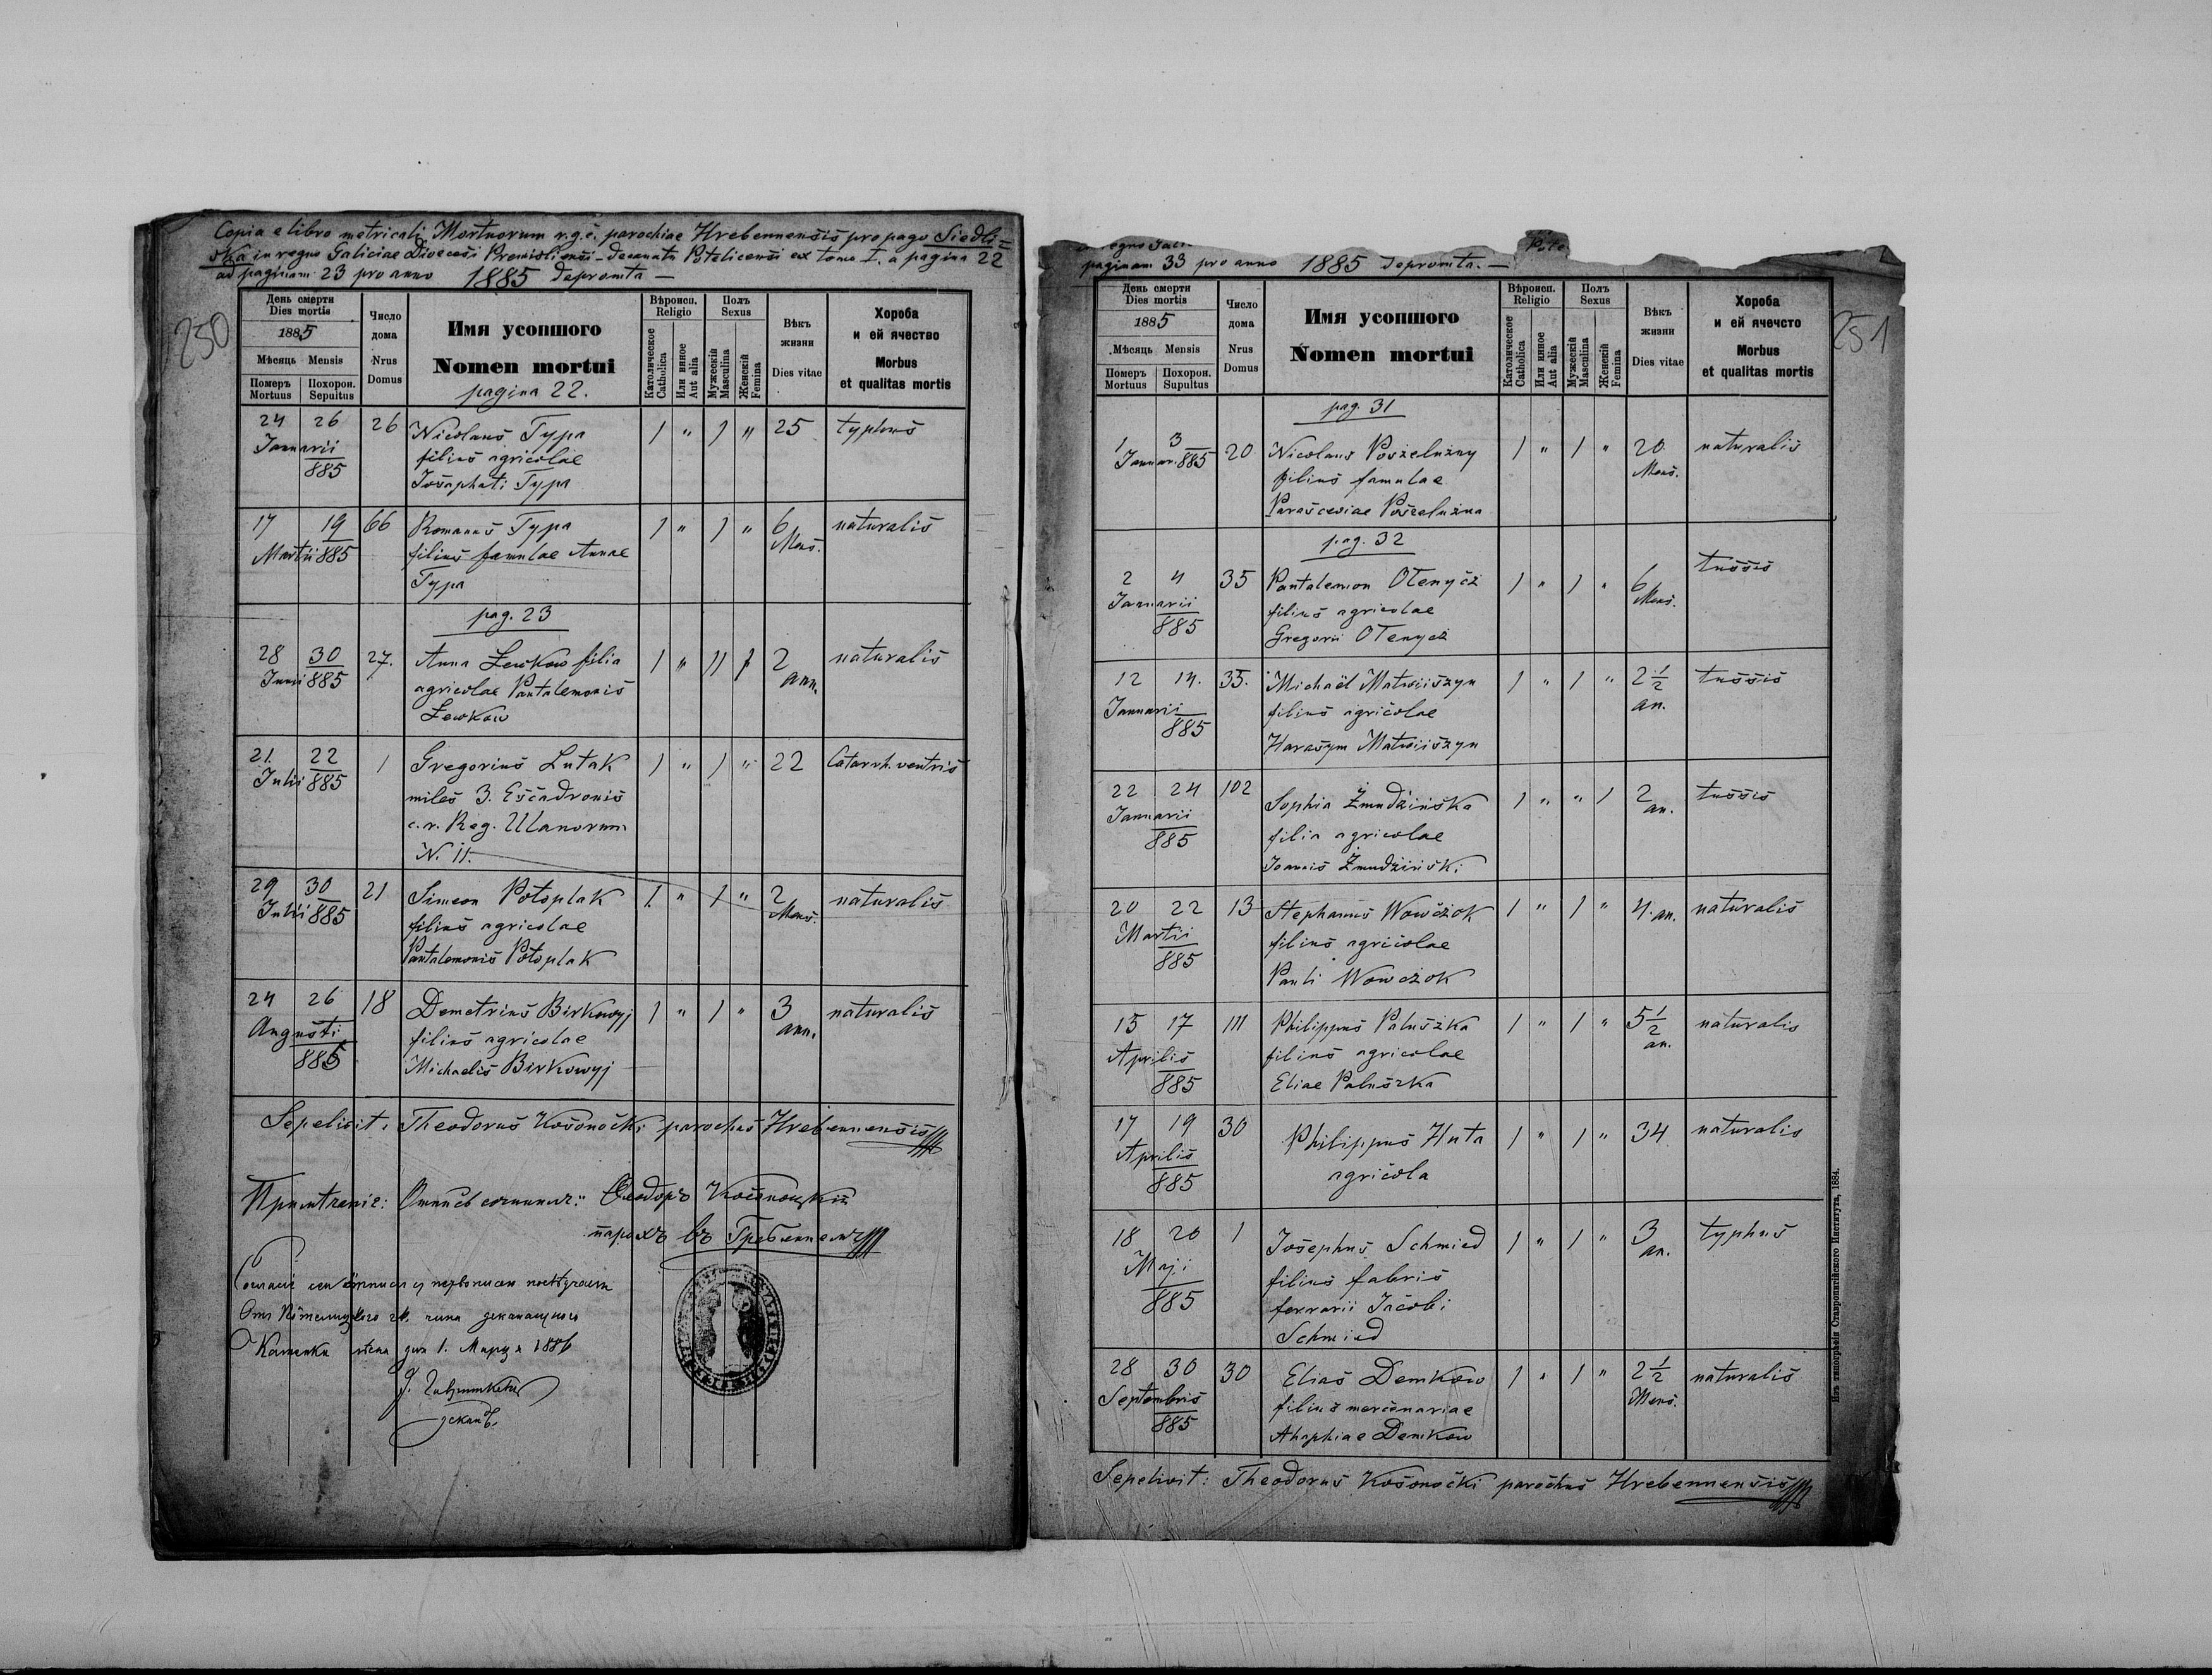 Copia e libro metricali Mortuorum r.g.c. parochiae Hrebennensis pro pago Siedli=
ska in regno Galiciae Dioecesi Premisliensi - decanatu Potelicensi ex tomo I. a pagina 22
ad paginam 23 pro anno 1885 depromta —
250
День смерти
Dies mortis
1885
Мѣсяць Mensis
Померъ Mortuus
Похорон. Sepultus
Число дома
Nrus Domus
Имя усопшого
Nomen mortui
pagina 22.
Вѣроисп.
Religio
Католическое Catholica
Или инное Aut alia
Полъ
Sexus
Мужескій Masculina
Женскій Femina
Вѣкъ жизни
Dies vitae
Хороба
и ей ячество
Morbus
et qualitas mortis
24 26 26 Nicolaus Typa 1 " 1 " 25 typhus
Januarii filius agricolae
885 Josaphati Typa
17 19 66 Romanus Typa 1 " 1 " 6 naturalis
Martii 885 filius famulae Annae Mens.
Typa
pag. 23
28 30 27. Anna Lewkow filia 1 " 11 1 2 naturalis
Junii 885 agricolae Pantalemonis ann.
Lewkow
21. 22 1 Gregorius Lutak 1 " 1 " 22 Catarrh. ventris
Julii 885 miles 3. Escadronis
c.r. Reg. Ulanorum
N. 11.
29 30 21 Simeon Potoplak 1. " 1 " 2 naturalis
Julii 885 filius agricolae Mens.
Pantalemonis Potoplak
24 26 18 Demetrius Birkowyj 1 " 1 " 3 naturalis
Augusti filius agricolae ann.
885 Michaelis Birkowyj
Sepelivit: Theodorus Kosonocki parochus Hrebennensis
Ѳеодоръ Косоноцкій
парохъ въ Гребенном
Каменка дня 1. Марця 1886
деканъ.
paginam 33 pro anno 1885 depromta. —
251
День смерти
Dies mortis
1885
Мѣсяць Mensis
Померъ Mortuus
Похорон. Supultus
Число дома
Nrus Domus
Имя усопшого
Nomen mortui
Вѣроисп.
Religio
Католическое Catholica
Или инное Aut alia
Полъ
Sexus
Мужескій Masculina
Женскій Femina
Вѣкъ жизни
Dies vitae
Хороба
и ей ячечсто
Morbus
et qualitas mortis
pag. 31
1 3 20 Nicolaus Poszeluzny 1 " 1 " 20 naturalis
Januar. 885 filius famulae Mens.
Parasceviae Poszeluzna
pag. 32
2 4 35 Pantalemon Olenycz 1 " 1 " 6 tussis
Januarii filius agricolae Mens.
885 Gregorii Olenycz
12 14. 35. Michaël Matwiiszyn 1 " 1 " 2 1/2 tussis
Januarii filius agricolae an.
885 Harasym Matwiiszyn
22 24 102 Sophia Żmudzińska 1 " " 1 2 tussis
Januarii filia agricolae an.
885 Joannis Żmudziński
20 22 13 Stephanus Wowczok 1 " 1 " 4. an. naturalis
Martii filius agricolae
885 Pauli Wowczok
15 17 111 Philippus Paluszka 1 " 1 " 5 1/2 naturalis
Aprilis filius agricolae an.
885 Eliae Paluszka
17 19 30 Philippus Huta 1 " 1 " 34 naturalis
Aprilis agricola
885
18 20 1 Josephus Schmied 1 " 1 " 3 typhus
Maji filius fabris an.
885 ferrarii Jacobi
Schmied
28 30 30 Elias Demkow 1 " 1 " 2 1/2 naturalis
Septembris filius mercenariae Mens.
885 Ahaphiae Demkow
Sepelivit: Theodorus Kosonocki parochus Hrebennensis
Изъ типографіи Ставропигійского Института, 1884.